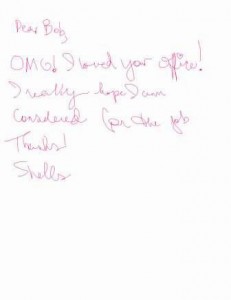 Dear Bob,
OMG! I loved your office!
I really hope I am
Considered for the job
Thanks!
Shells